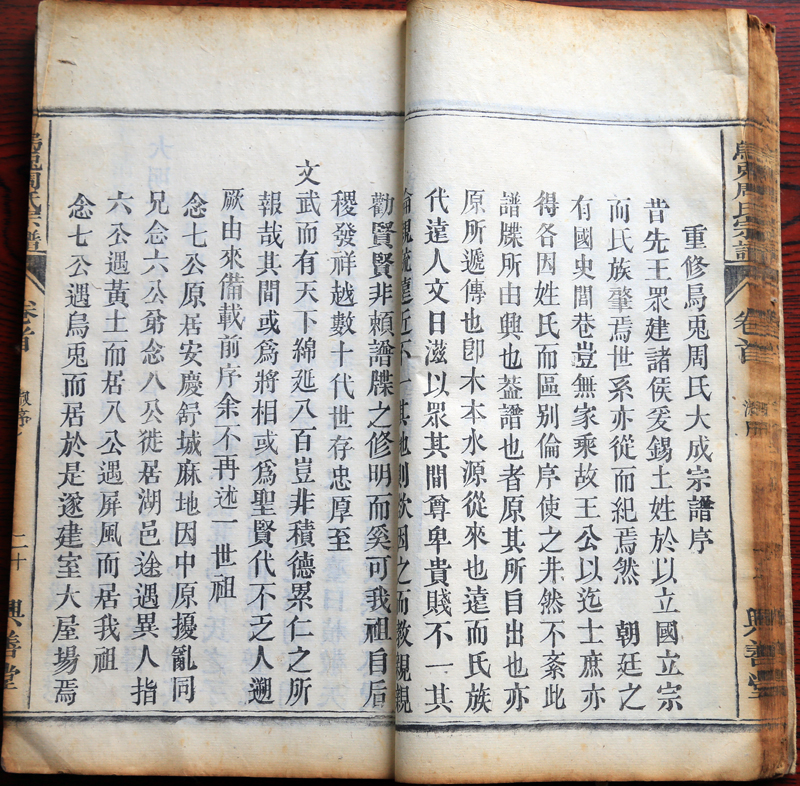 重修烏兎周氏大成宗譜序
昔先王眾建諸侯爰錫土姓於以立國立宗
而氏族肇焉世系亦從而紀焉然　朝廷之
有國史閭巷豈無家乘故王公以迄士庶亦
得各因姓氏而區別倫序使之井然不紊此
譜牒所由興也葢譜也者原其所自出也亦
原所遞傳也卽木本水源從來也遠而氏族
代遠人文日滋以眾其間尊卑貴賤不一其
倫親疏遠近不一其地則欲因之而敦親親
勸賢賢非賴譜牒之修明而奚可我祖自后
稷發祥越數十代世存忠厚至
文武而有天下綿延八百豈非積德累仁之所
報哉其間或爲將相或爲聖賢代不乏人遡
厥由來備載前序余不再述一世祖
念七公原居安慶舒城麻地因中原擾亂同
兄念六公弟念八公徙居湖邑途遇異人指
六公遇黃土而居八公遇屏風而居我祖
念七公遇烏兎而居於是遂建室大屋場焉
烏兎周氏宗譜
卷首
二十
興善堂
烏兎周氏宗譜
卷首
興善堂